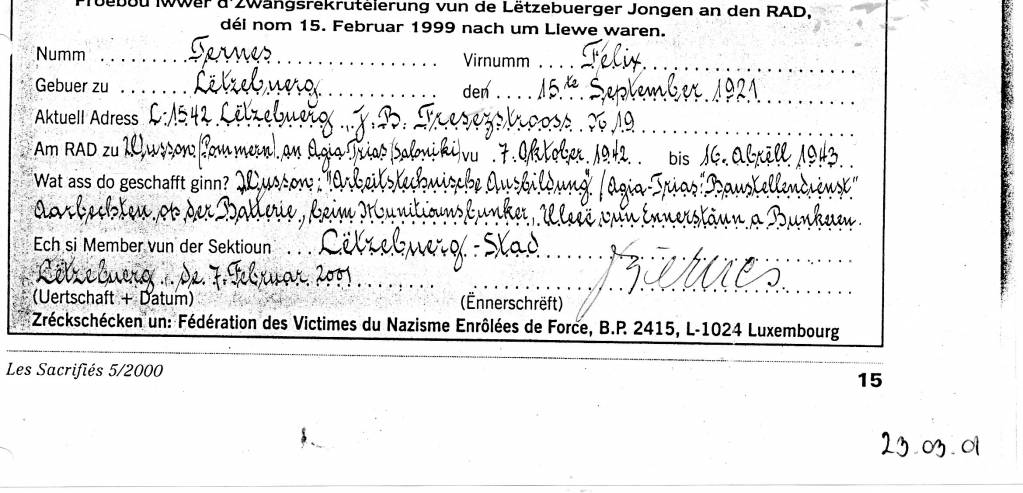 Froebou iwwer d'Zwangsrekrutéierung vun de Lëtzebuerger Jongen an den RAD,
déi nom 15. Februar 1999 nach um Liewe waren.
Numm Ternes Virnumm Félix
Gebuer zu Lëtzebuerg den 15te September 1921
Aktuell Adress L-1542 Lëtzebuerg, J.B. Fresezstrooss N 19
Am RAD zu Wusson (Pommern) an Agia-Trias (Saloniki) vu 7. Oktober 1942 bis 16. Abrëll 1943
Wat ass do geschafft ginn? Wusson: "Arbeitstechnische Ausbildung" / Agia-Trias: "Baustellendienst"
Aarbechten op der Batterie, beim Munitiounsbunker, Uleeë vun Ennerstänn a Bunkeren.
Ech si Member vun der Sektioun Lëtzebuerg-Stad
Lëtzebuerg, de 7. Februar 2001 Ternes
(Uertschaft + Datum) (Ënnerschrëft)
Zréckschécken un: Fédération des Victimes du Nazisme Enrôlées de Force, B.P. 2415, L-1024 Luxembourg
Les Sacrifiés 5/2000
15
23.03.01